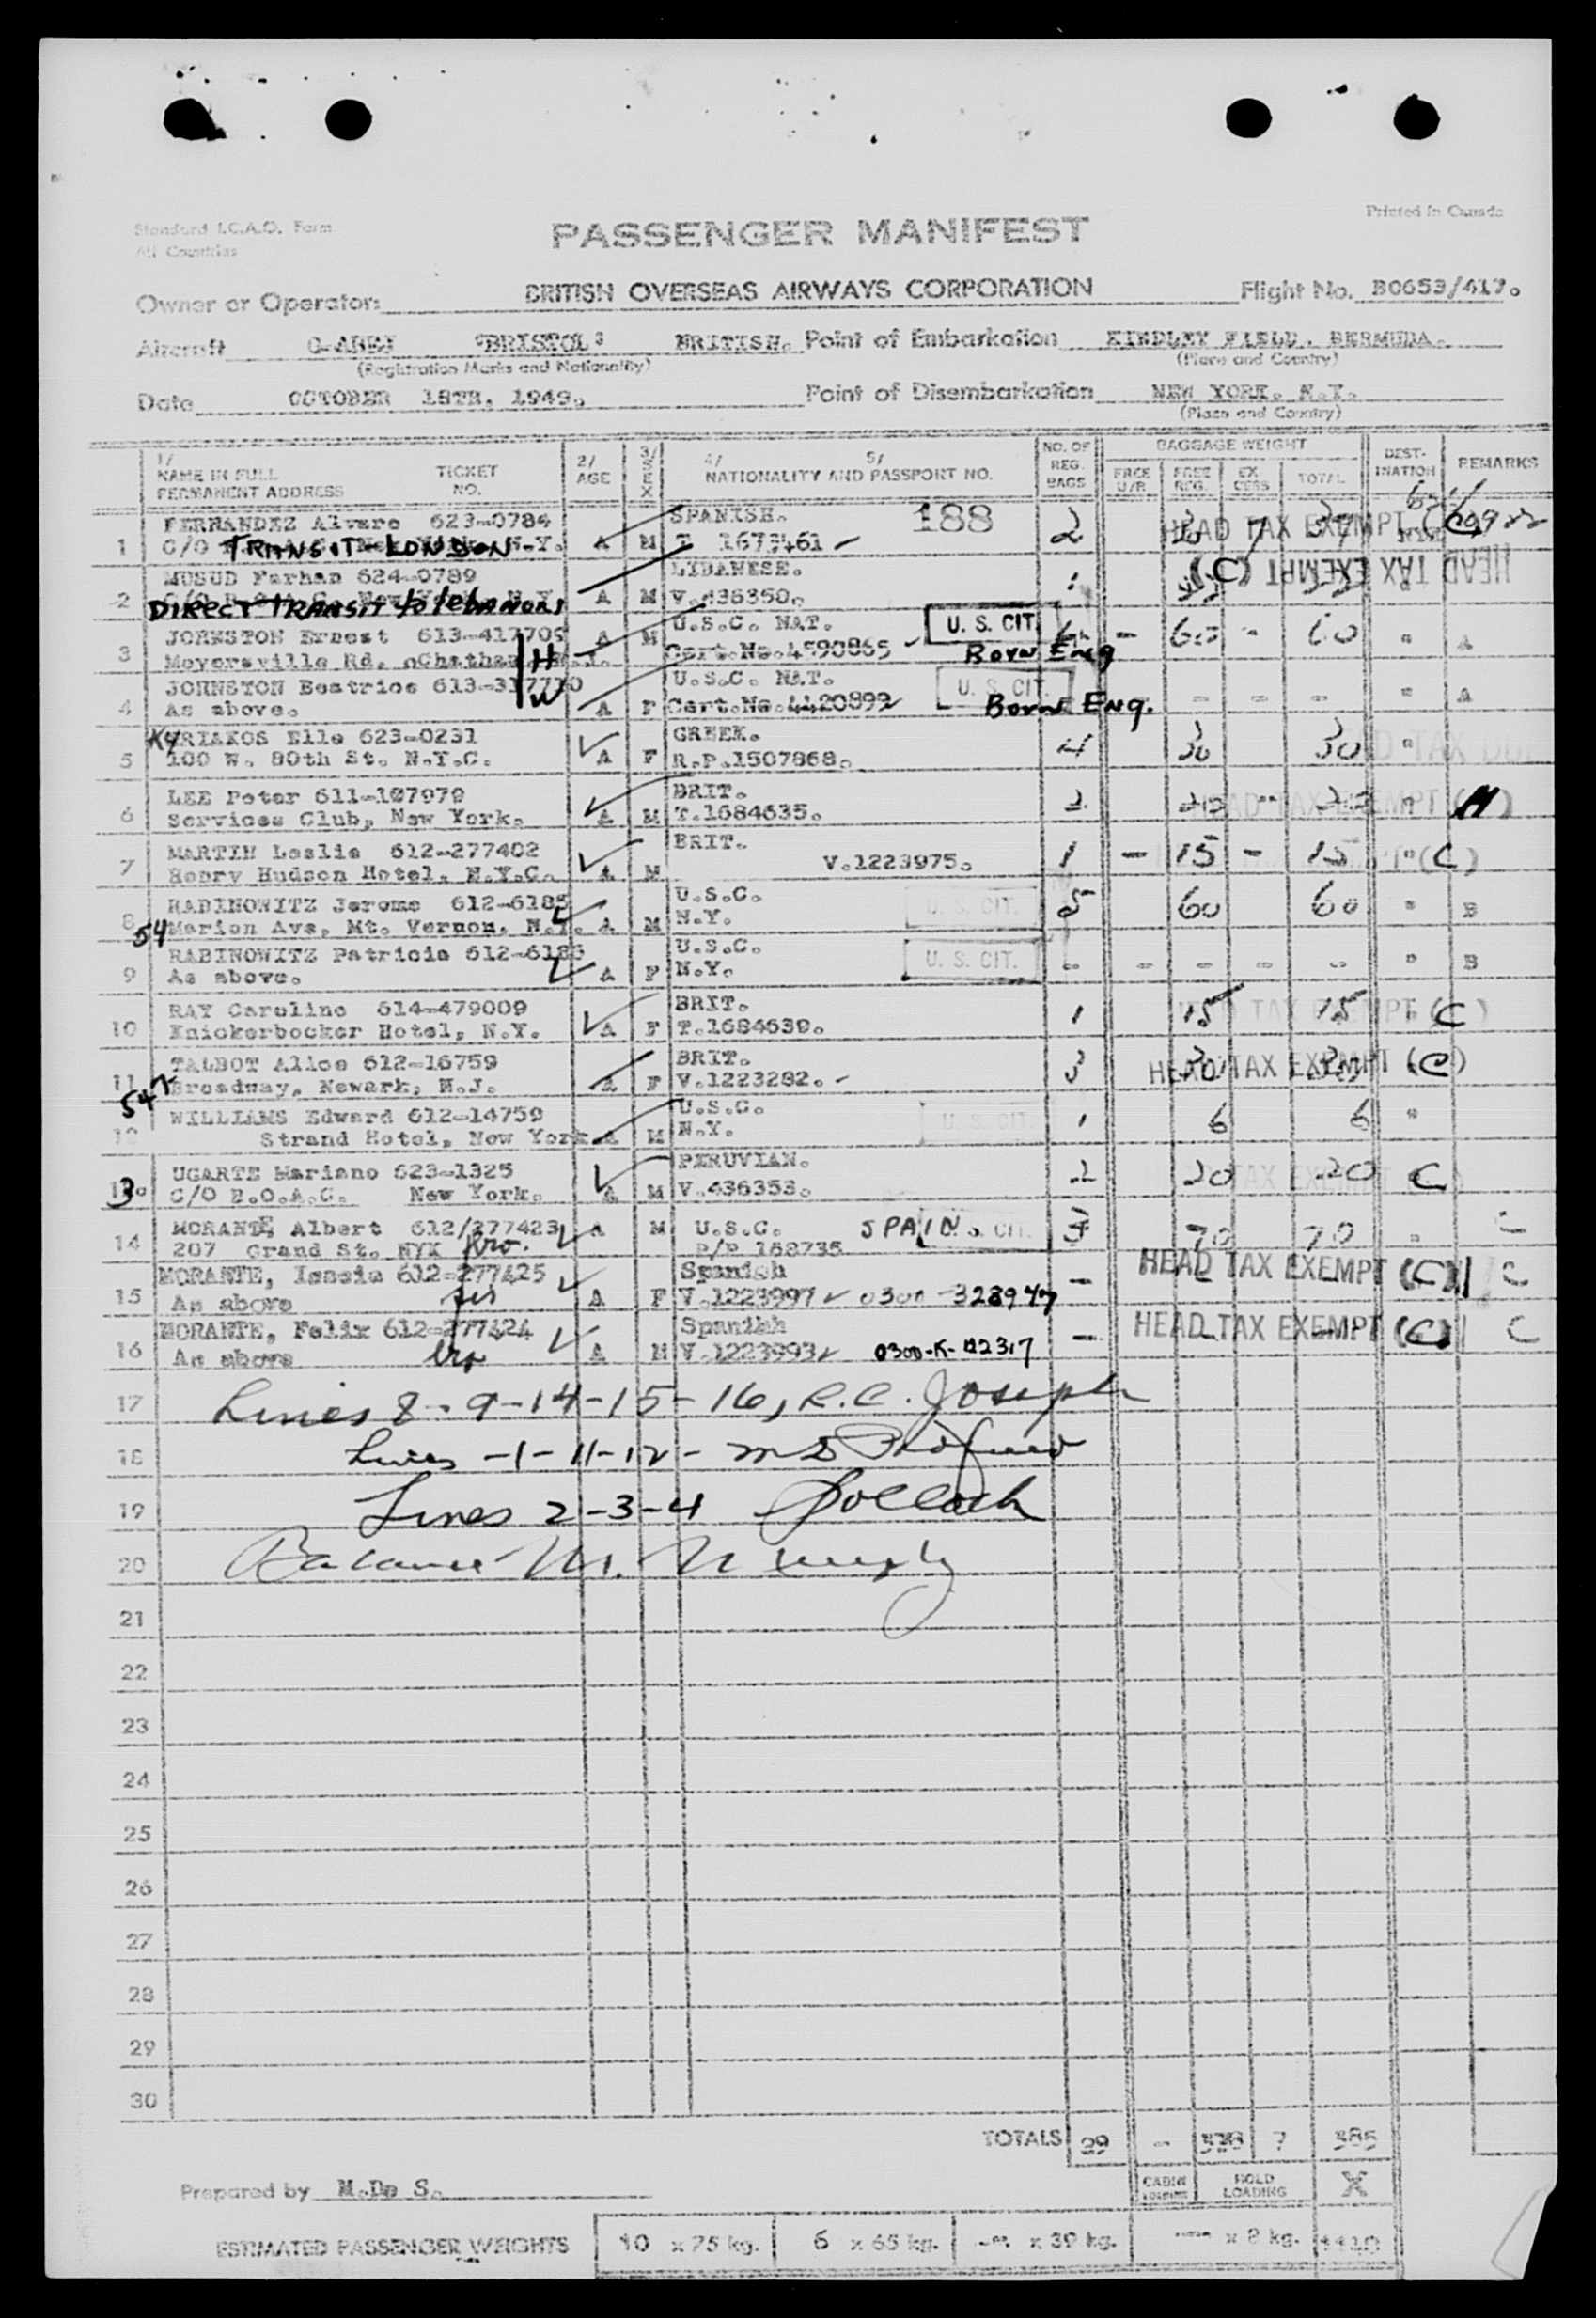 Standard I.C.A.O. Form
All Countries
Printed in Canada
PASSENGER MANIFEST
Owner or Operator: BRITISH OVERSEAS AIRWAYS CORPORATION Flight No.
Aircraft "BRISTOL" BRITISH. Point of Embarkation KINDLEY FIELD. BERMUDA.
(Registration Marks and Nationality) (Place and Country)
Date OCTOBER 18TH. 1949. Point of Disembarkation NEW YORK. N.Y.
(Place and Country)
1/ NAME IN FULL PERMANENT ADDRESS TICKET NO. 2/ AGE 3/ SEX 4/ 5/ NATIONALITY AND PASSPORT NO. NO. OF REG. BAGS BAGGAGE WEIGHT FREE U/R FREE REG. EX. CESS TOTAL DEST- INATION REMARKS
FERNANDEZ Alvaro 623-0784 SPANISH. 188 2 HEAD TAX EXEMPT (C)
1 C/O TRANSIT - LONDON N.Y. A M T 1673461
MUSUD Farhan 624-0789 LIBANESE. HEAD TAX EXEMPT (C)
2 DIRECT TRANSIT to lebanon A M V.436350.
JOHNSTON Ernest 613-417709 A M U.S.C. NAT. U. S. CIT. 60 - 60 "
3 Meyersville Rd. Chatham, N.J. H Cert.No.4590865 Born Eng A
JOHNSTON Beatrice 613-317710 U.S.C. NAT. U. S. CIT. - - - " A
4 As above. W A F Cert.No.4420899 Born Eng.
KYRIAKOS Elle 623-0231 GREEK. 4 30 30 "
5 100 W. 80th St. N.Y.C. A F R.P.1507868.
LEE Peter 611-107979 BRIT. 2 HEAD TAX EXEMPT (H)
6 Services Club, New York. A M T.1684635.
MARTIN Leslie 612-277402 BRIT. 1 - 15 - 15 " (C)
7 Henry Hudson Hotel. N.Y.C. A M V.1223975.
RABINOWITZ Jerome 612-6185 U.S.C. U. S. CIT. 5 60 60 " B
8 54 Marion Ave, Mt. Vernon, N.Y. A M N.Y.
RABINOWITZ Patricia 612-6186 U.S.C. U. S. CIT. - - - - - " B
9 As above. A F N.Y.
RAY Caroline 614-479009 BRIT. 1 15 15 (C)
10 Knickerbocker Hotel, N.Y. A F T.1684639.
TALBOT Alice 612-16759 BRIT. 3 HEAD TAX EXEMPT (C)
11 547 Broadway, Newark, N.J. A F V.1223282.
WILLIAMS Edward 612-14759 U.S.C. U. S. CIT. 1 6 6 "
12 Strand Hotel, New York. A M N.Y.
UGARTE Mariano 623-1325 PERUVIAN. 2 20 20 C
13. C/O B.O.A.C. New York. A M V.436353.
MORANTE, Albert 612/277423 A M U.S.C. SPAIN U.S. CIT. 70 70 "
14 207 Grand St. NYK Bro. P/P 168735
MORANTE, Iessie 612-277425 Spanish HEAD TAX EXEMPT (C) C
15 As above sis A F V.1223997 0300-328947
MORANTE, Felix 612-277424 Spanish HEAD TAX EXEMPT (C) C
16 As above bro A M V.1223993
17 Lines 8-9-14-15-16, R.C. Joseph
18 Lines -1-11-12-
19 Lines 2-3-4
20 Balance
21
22
23
24
25
26
27
28
29
30
TOTALS 29 - 7 385
CABIN HOLD LOADING X
Prepared by M.De S.
ESTIMATED PASSENGER WEIGHTS 10 x 75 kg. 6 x 65 kg. x 39 kg. x 8 kg.